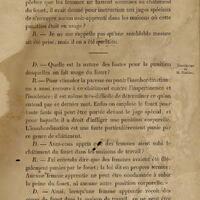 plie que les femmes ne fussent soumises au châtiment
du fouet, il avait donné pour instruction aux juges spéciaux
de n'envoyer aucun non-apprenti dans les maisons où cette
punition était en usage?
R. — Je ne me rappelle pas qu'une semblable mesure
ait été prise, mais il en a été question.
D. — Quelle est la nature des fautes pour la punition
desquelles on fait usage du fouet?
R. — Pour stimuler la paresse ou punir l'insubordination;
l'insolence; il est même très-difficile de déterminer ce qu'on
entend par ce dernier mot. Enfin on emploie le fouet pour
toute faute qui peut être portée devant le juge spécial, et
pour laquelle il a droit d'infliger une punition corporelle.
L'insubordination est une faute particulièrement punie par
ce genre de châtiment.
D. — Avez-vous appris que des femmes aient subi le
châtiment du fouet dans les maisons de travail?
R. — J'ai entendu dire que des femmes avaient été illéga-
lement punies par le fouet; la loi dit en propres termes:
Aucune femme apprentie ne peut être condamnée à subir
la peine du fouet, ni aucune autre punition corporelle.
D. — Ainsi, lorsqu'une femme apprentie reçoit des
coups de fouet dans la maison de travail, on ne peut être